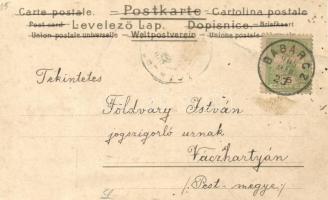 Carte postale. Postkarte Cartolina postale
Post card Levelező Lap. Dopisnice. Briefkaart
Union postale universelle Weltpostverein Unione postale
BABARCZ
Tekintetes
Földváry István
jogszigorló urnak
Váczhartyán
/: Pest-megye :/